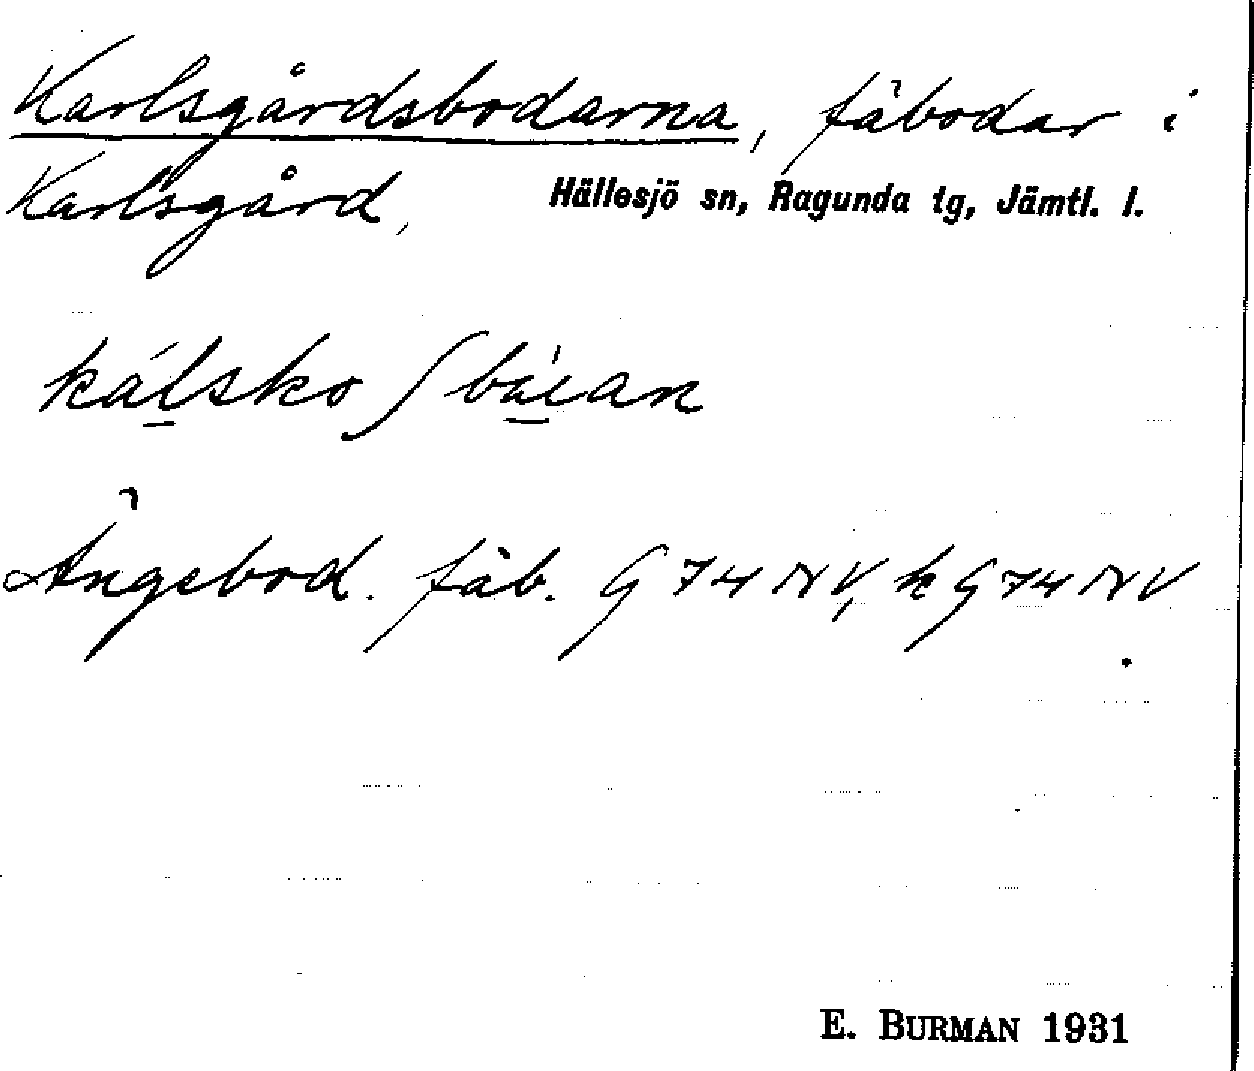 Karlsgårdsbodarna, fäbodar i
Karlsgård, Hällesjö sn, Ragunda tg, Jämtl. l.
Ångebod. fäb. G 74 NV, k G 74 NV.
E. BURMAN 1931